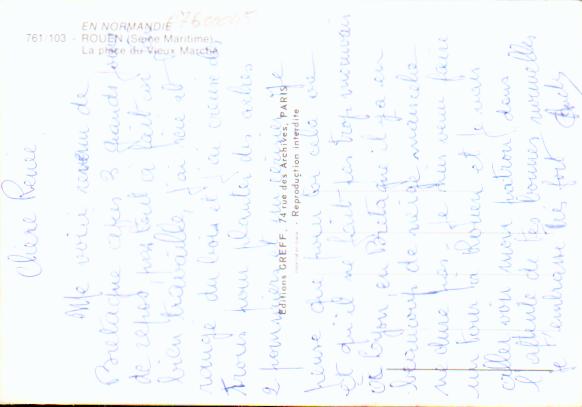 EN NORMANDIE
761/103 - ROUEN (Seine Maritime)
La place du Vieux Marché
Editions GREFF, 74 rue des Archives, PARIS
- Reproduction interdite
Chère Renée
Me voici revenu de
Bretagne après 3 grands jours
de repos pas tout à fait car j'ai
bien travaillé, j'ai scié et
rangé du bois et ai creusé des
trous pour planter des arbres
2 pommiers
pense que pour toi cela va
et qu'il ne fait pas trop mauvais
à Lyon, en Bretagne il y a eu
beaucoup de neige mais cela
ne dure pas. Je suis venu faire
un tour à Rouen et je vais
aller voir mon patron dans
l'attente de tes bonnes nouvelles
je t'embrasse très fort